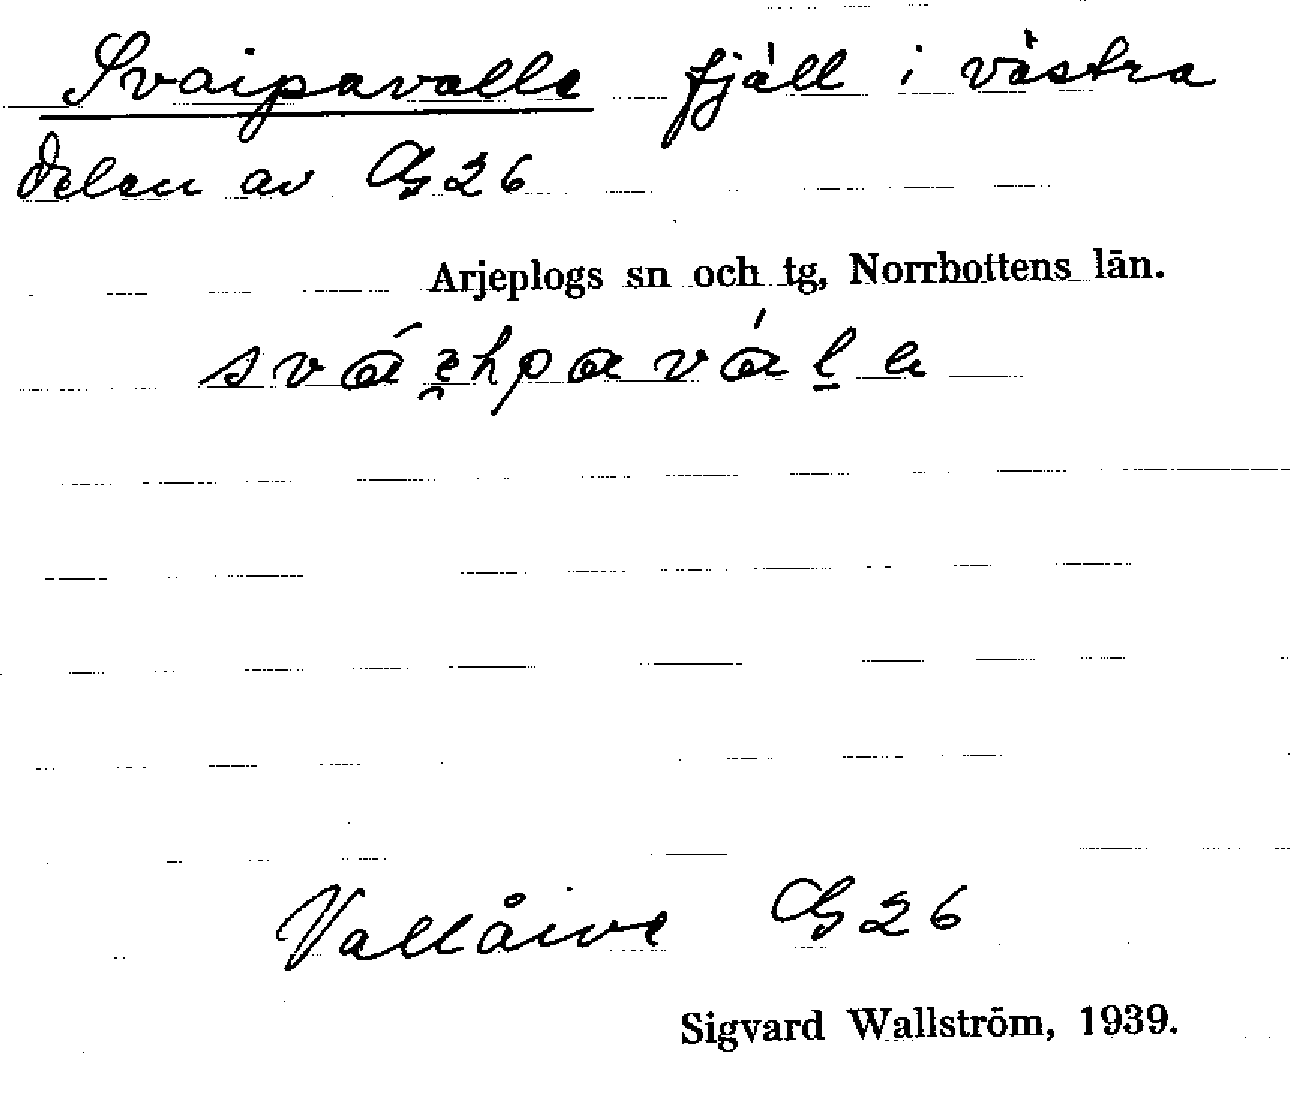 Svaipavalle fjäll i västra
delen av G26
Arjeplogs sn och tg, Norrbottens län.
Vallåive G26
Sigvard Wallström, 1939.